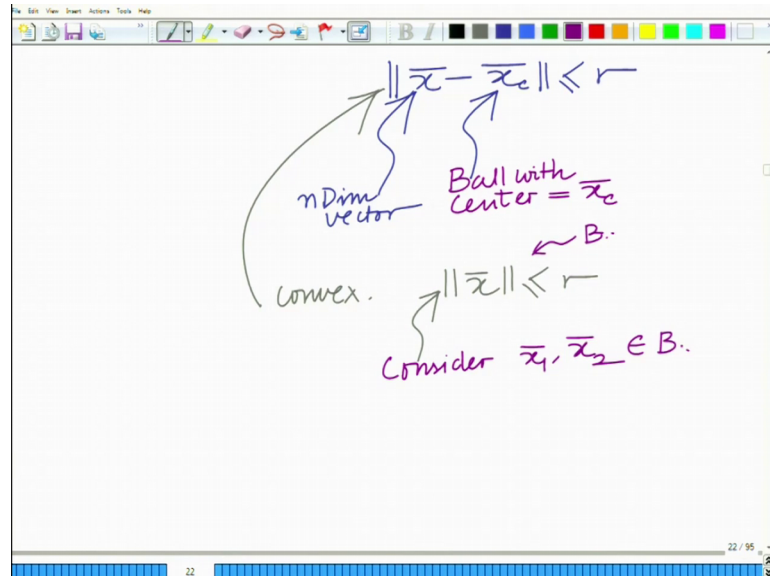 File Edit View Insert Actions Tools Help
B I
||x̄ − x̄c|| ≤ r
nDim
vector
Ball with
center = x̄c
B..
convex.
||x̄|| ≤ r
Consider x̄1, x̄2 ∈ B..
22 / 95
22